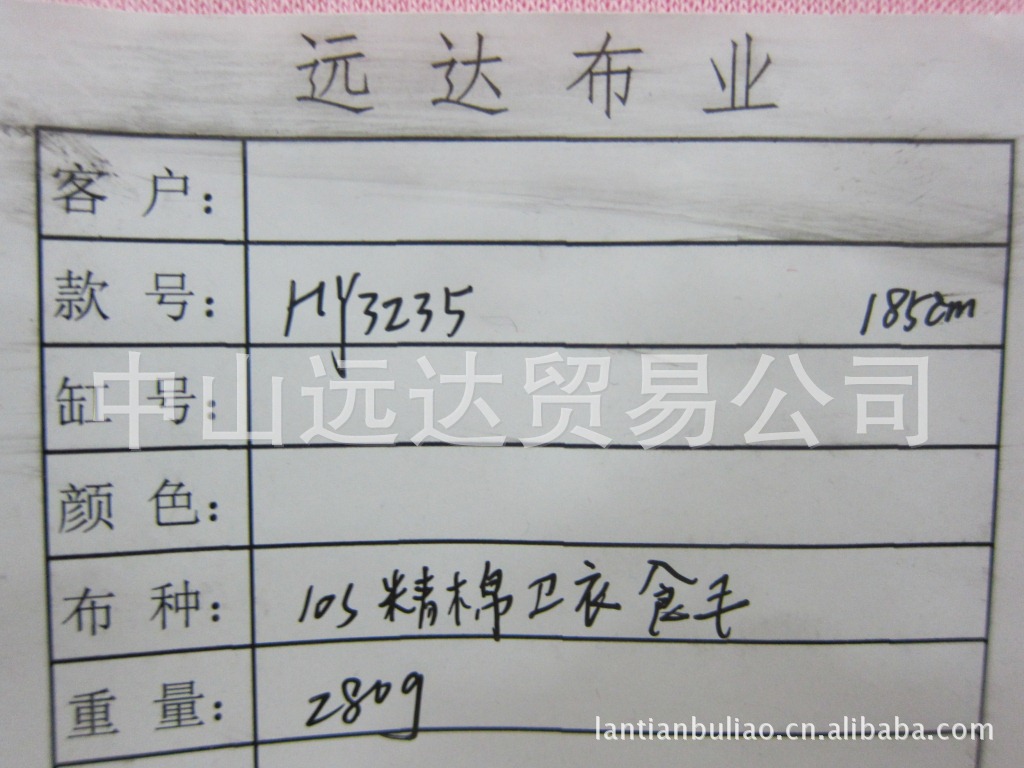 远达布业
客户:
款号: HY3235 185cm
缸号:
中山远达贸易公司
颜色:
布种: 10S精棉卫衣食毛
重量: 280g
lantianbuliao.cn.alibaba.com